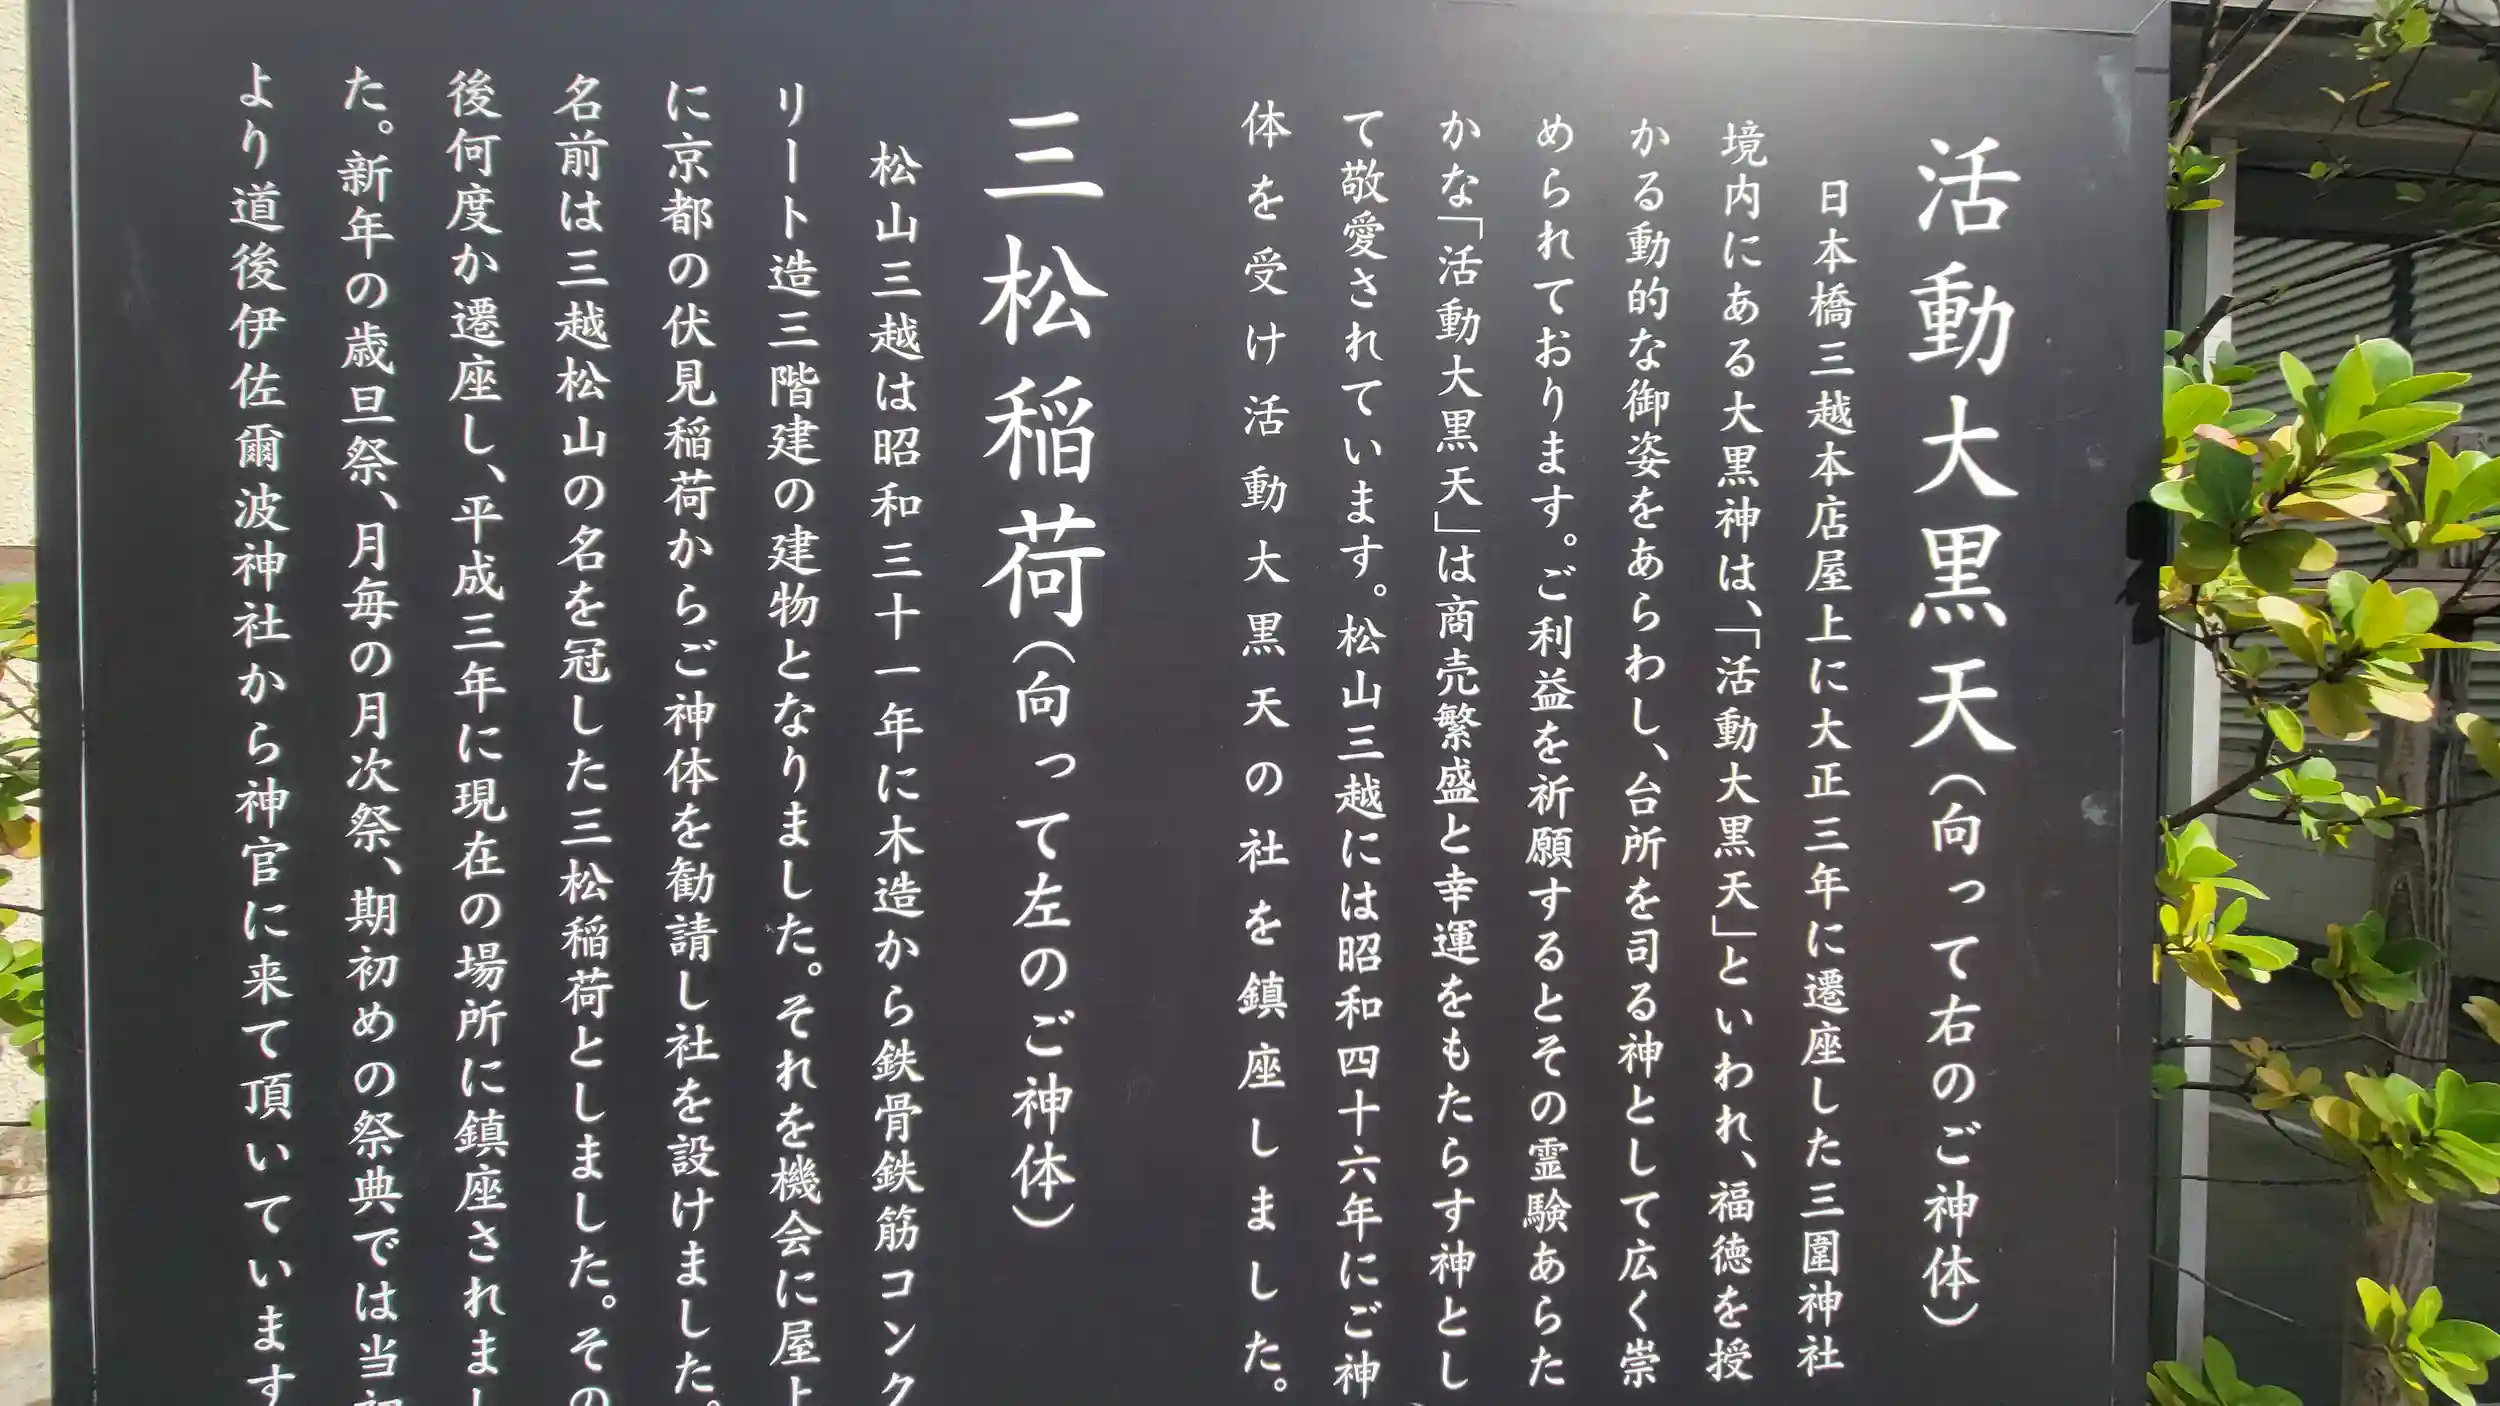 活動大黒天(向って右のご神体)
日本橋三越本店屋上に大正三年に遷座した三囲神社
境内にある大黒神は、「活動大黒天」といわれ、福徳を授
かる動的な御姿をあらわし、台所を司る神として広く崇
められております。ご利益を祈願するとその霊験あらた
かな「活動大黒天」は商売繁盛と幸運をもたらす神とし
て敬愛されています。松山三越には昭和四十六年にご神
体を受け活動大黒天の社を鎮座しました。
三松稲荷(向って左のご神体)
松山三越は昭和三十一年に木造から鉄骨鉄筋コンク
リート造三階建の建物となりました。それを機会に屋上
に京都の伏見稲荷からご神体を勧請し社を設けました。
名前は三越松山の名を冠した三松稲荷としました。その
後何度か遷座し、平成三年に現在の場所に鎮座されまし
た。新年の歳旦祭、月毎の月次祭、期初めの祭典では当初
より道後伊佐爾波神社から神官に来て頂いています